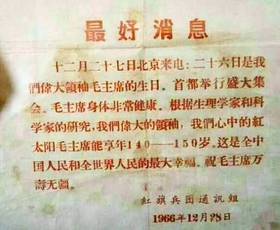 最好消息
十二月二十七日北京来电：二十六是我
們偉大領袖毛主席的生日。首都举行盛大集
会。毛主席身体非常健康。根据生理学家和科
学家的研究，我們偉大的領袖，我們心中的紅
太阳毛主席能享年140—150岁。这是全中
国人民和全世界人民的最大幸福。祝毛主席万
寿无疆。
紅旗兵团通訊組
1966年12月28日